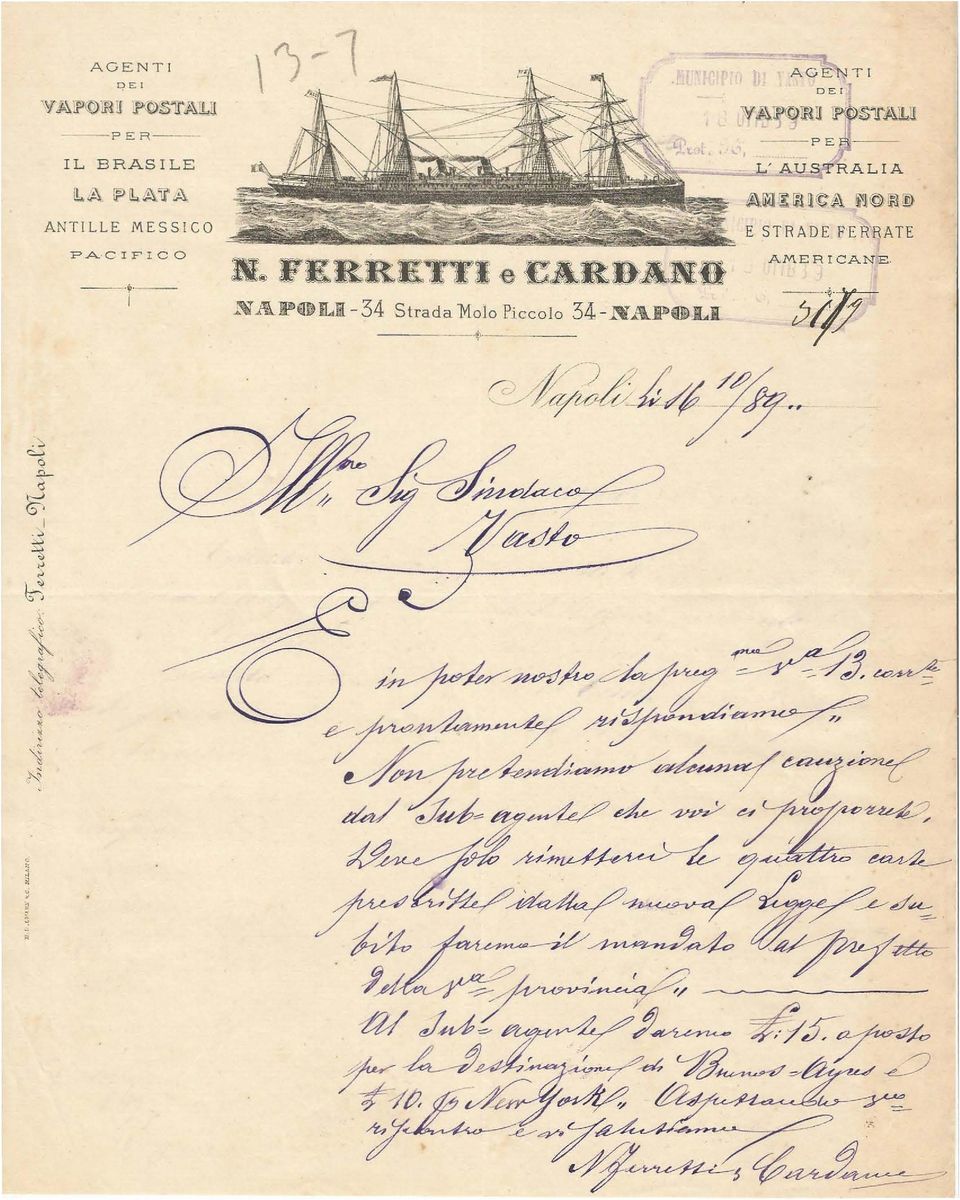 13-7
AGENTI
DEI
VAPORI POSTALI
PER
IL BRASILE
LA PLATA
ANTILLE MESSICO
PACIFICO
MUNICIPIO DI VASTO
18 OTTB 89
Prot.
AGENTI
DEI
VAPORI POSTALI
PER
L'AUSTRALIA
AMERICA NORD
E STRADE FERRATE
AMERICANE
N. FERRETTI e CARDANO
NAPOLI - 34 Strada Molo Piccolo 34 - NAPOLI
Napoli li 16 10/89..
Ill^mo Sig Sindaco
Vasto
E in poter nostro la preg^ma v^a 13. corr^te
e prontamente rispondiamo „
Non pretendiamo alcuna cauzione
dal Sub=agente che voi ci proporrete.
Deve solo rimetterci le quattro carte
prescritte dalla nuova Legge e su=
bito faremo il mandato al prefetto
della v^a provincia „
Al Sub=agente daremo £: 15. a posto
per la destinazione di Buenos=Ayres e
£ 10. New York „ Aspettando v^o
riscontro e vi salutiamo
N Ferretti & Cardano
Indirizzo telegrafico: Ferretti - Napoli
MILANO